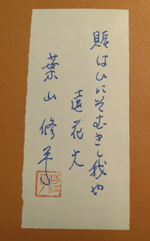 賑はひにそむきし我や
遠花火
葉山修平